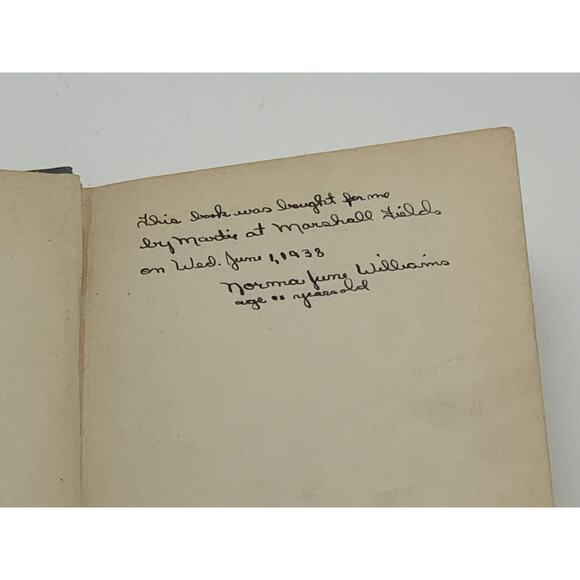 This book was bought for me
by Martie at Marshall Fields
on Wed. June 1, 1938
Norma June Williams
age 11 years old